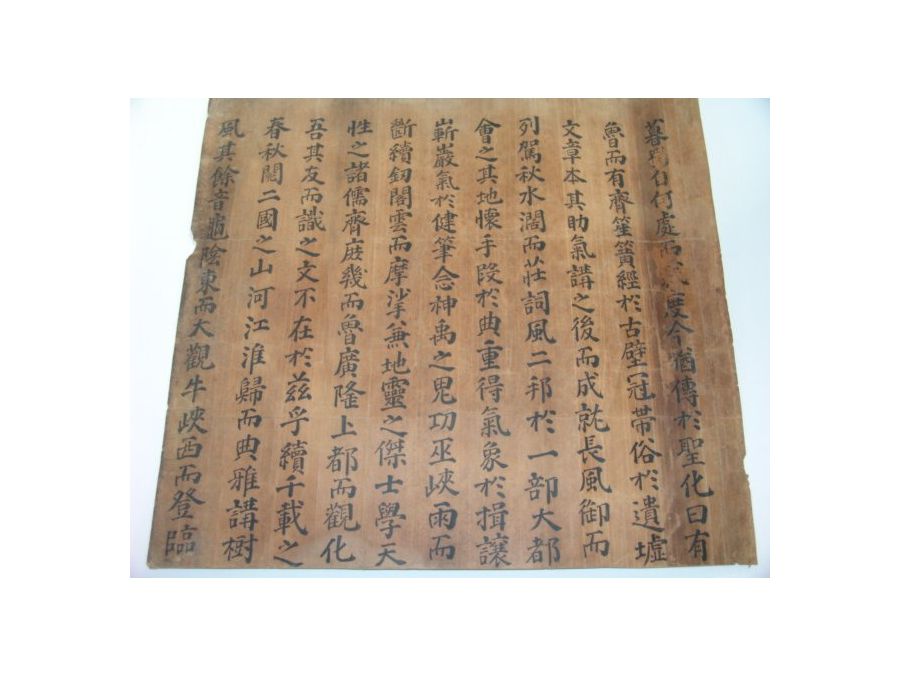 何處而度今猶傳於聖化曰有
魯而有齊笙簧經於古壁冠帶俗於遺墟
文章本其助氣講之後而成就長風御而
列駕秋水濶而莊詞風二邦於一部大都
會之其地懷手段於典重得氣象於揖讓
嶄巖氣於健筆念神禹之鬼功巫峽雨而
斷續釰閣雲而摩挲兼地靈之傑士學天
性之諸儒齊庶幾而魯廣隆上都而觀化
吾其友而識之文不在於玆乎續千載之
春秋闢二國之山河江淮歸而典雅講樹
風其餘音龜陰東而大觀牛峽西而登臨